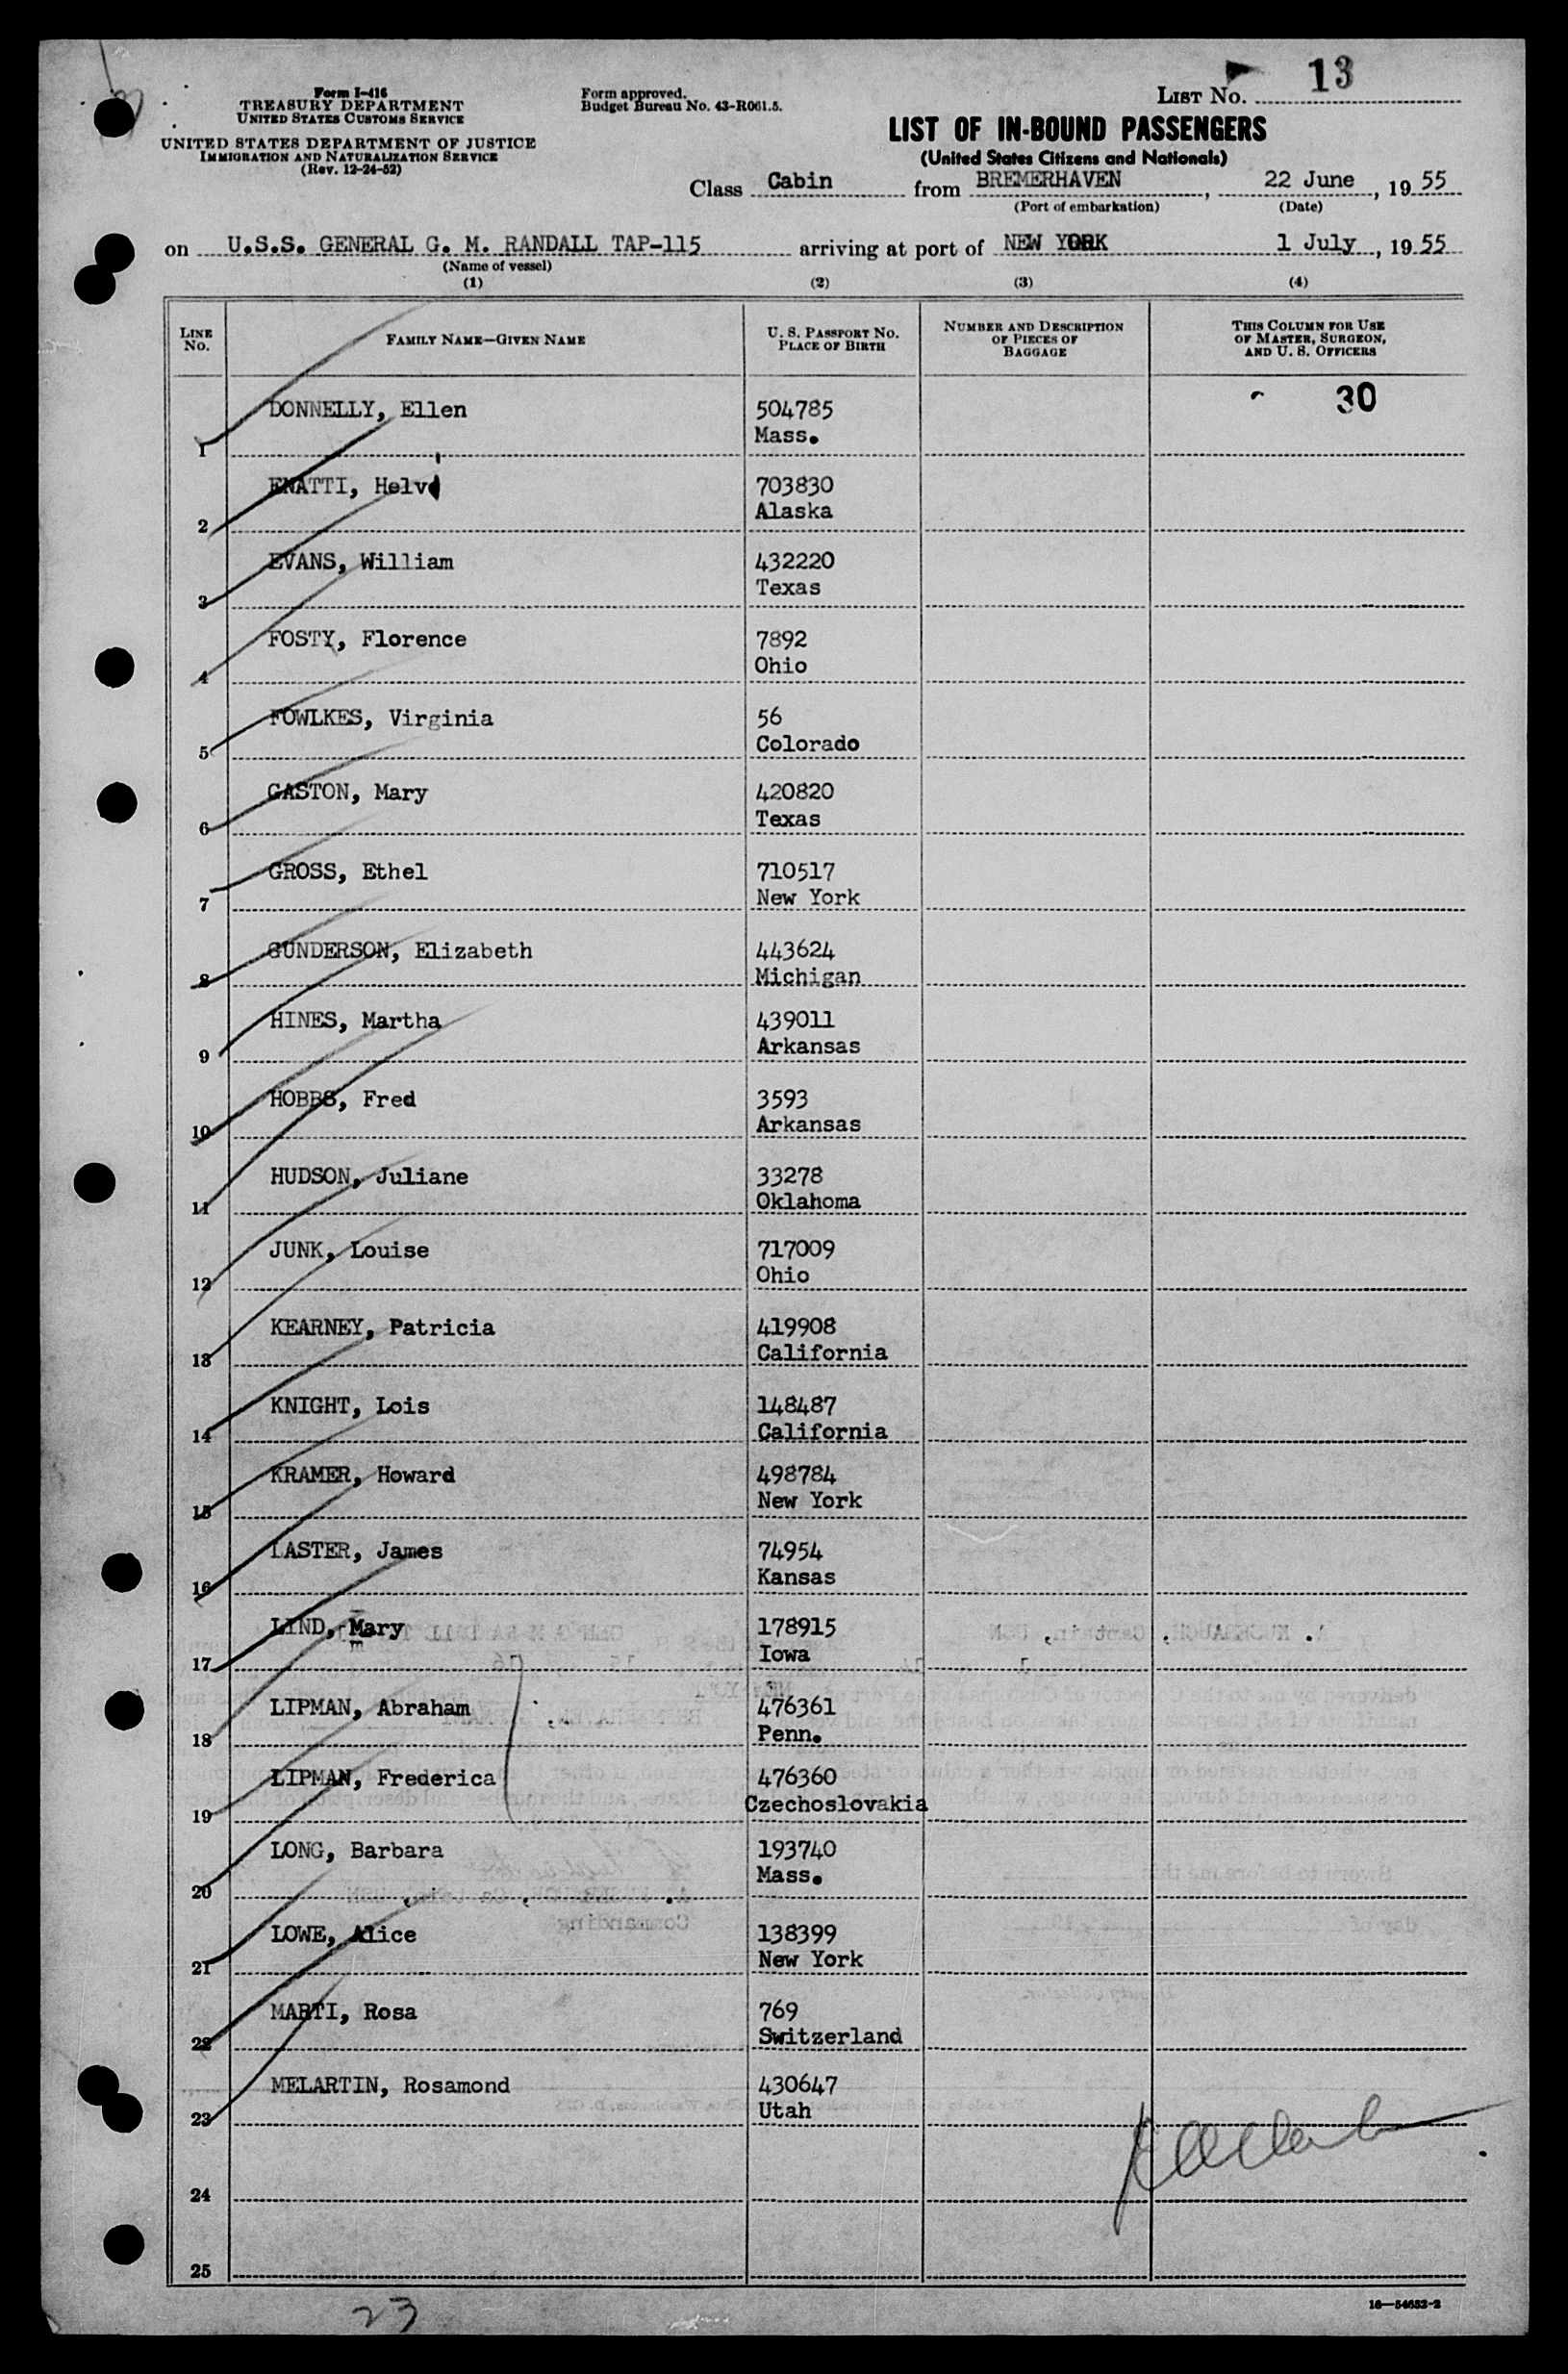 Form I-416
TREASURY DEPARTMENT
UNITED STATES CUSTOMS SERVICE
UNITED STATES DEPARTMENT OF JUSTICE
IMMIGRATION AND NATURALIZATION SERVICE
(Rev. 12-24-52)
Form approved.
Budget Bureau No. 43-R061.5.
LIST NO. 13
LIST OF IN-BOUND PASSENGERS
(United States Citizens and Nationals)
Class Cabin from BREMERHAVEN, 22 June, 1955
(Port of embarkation) (Date)
on U.S.S. GENERAL G. M. RANDALL TAP-115 arriving at port of NEW YORK 1 July, 1955
(Name of vessel)
(1) (2) (3) (4)
LINE NO. FAMILY NAME—GIVEN NAME U. S. PASSPORT NO. PLACE OF BIRTH NUMBER AND DESCRIPTION OF PIECES OF BAGGAGE THIS COLUMN FOR USE OF MASTER, SURGEON, AND U. S. OFFICERS
30
DONNELLY, Ellen 504785
1 Mass.
ENATTI, Helv 703830
2 Alaska
EVANS, William 432220
3 Texas
FOSTY, Florence 7892
4 Ohio
FOWLKES, Virginia 56
5 Colorado
GASTON, Mary 420820
6 Texas
GROSS, Ethel 710517
7 New York
GUNDERSON, Elizabeth 443624
8 Michigan
HINES, Martha 439011
9 Arkansas
HOBBS, Fred 3593
10 Arkansas
HUDSON, Juliane 33278
11 Oklahoma
JUNK, Louise 717009
12 Ohio
KEARNEY, Patricia 419908
13 California
KNIGHT, Lois 148487
14 California
KRAMER, Howard 498784
15 New York
LASTER, James 74954
16 Kansas
LIND, Mary 178915
17 Iowa
LIPMAN, Abraham 476361
18 Penn.
LIPMAN, Frederica 476360
19 Czechoslovakia
LONG, Barbara 193740
20 Mass.
LOWE, Alice 138399
21 New York
MARTI, Rosa 769
22 Switzerland
MELARTIN, Rosamond 430647
23 Utah
24
25
16—54652-2
23